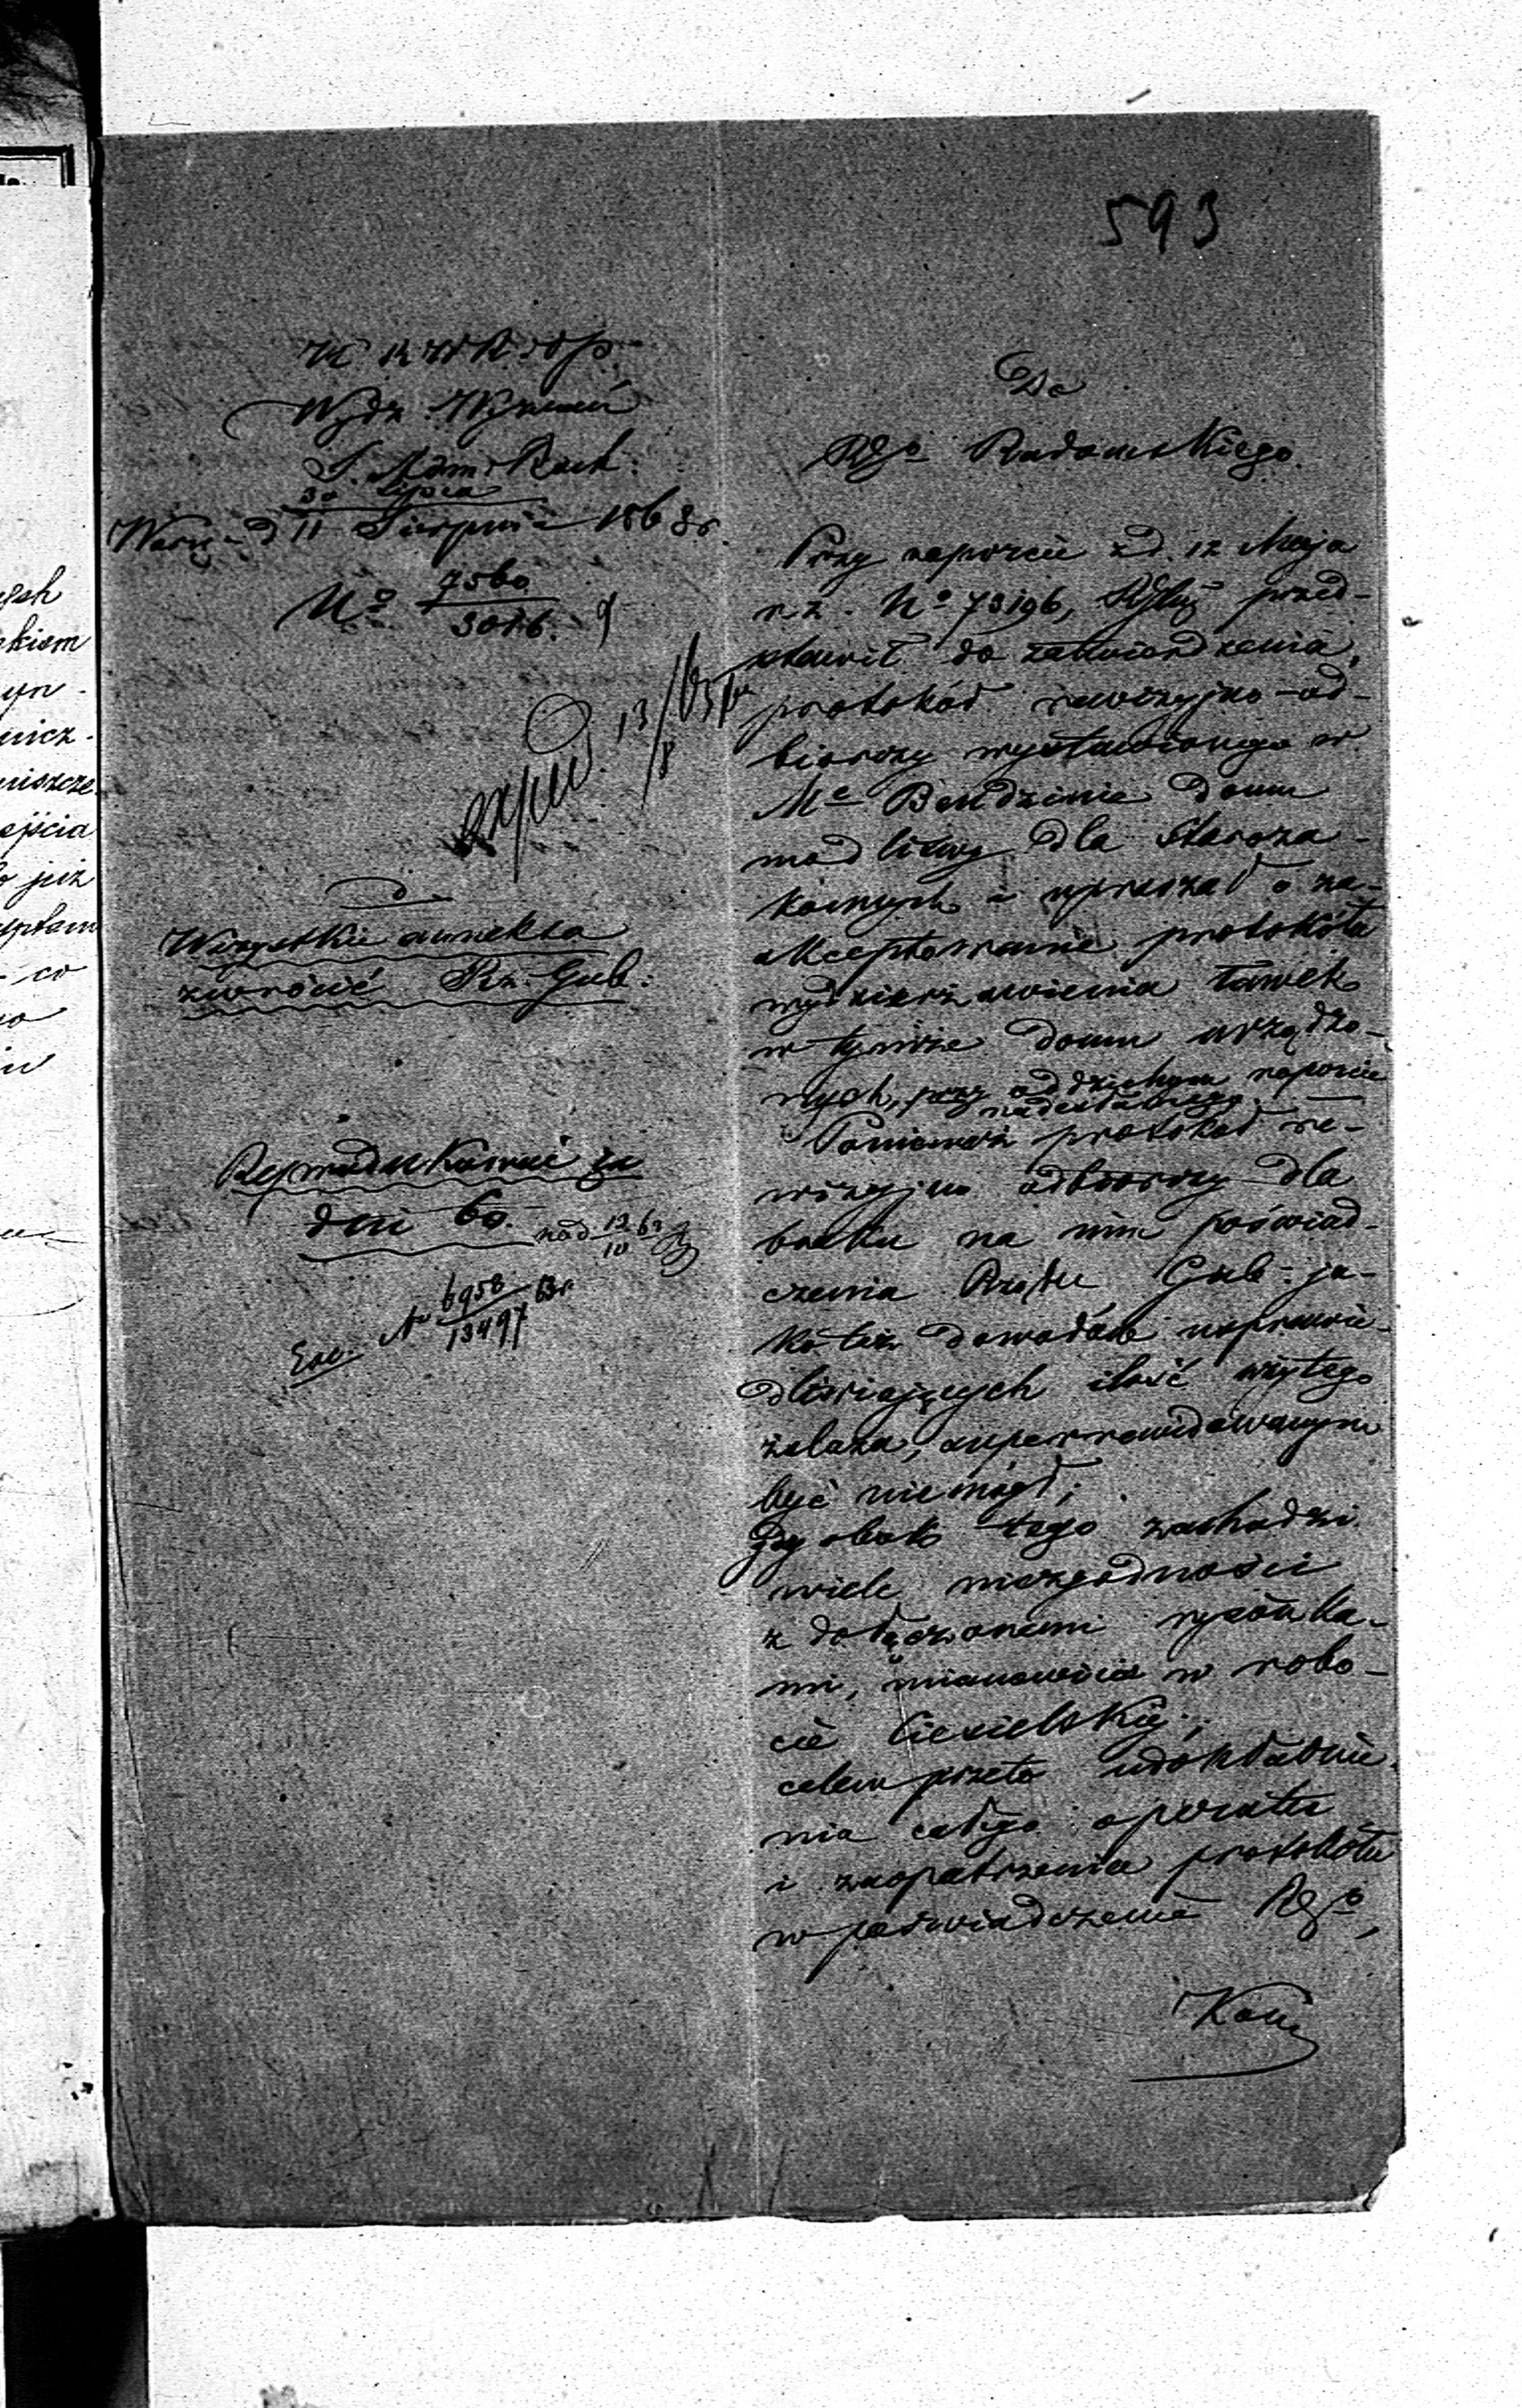 593
Wydz. Wyznań
S. Adm. Rach.
30 lipca
Warsz. d 11 Sierpnia 1863 r.
No 7560
3016.
exped. 13/8 63
Wszystkie anneksa
zwrócić Rz. Gub:
Reprodukować za
dni 60.
No 6958
13497 63 r.
Do
Rgo Radomskiego.
Przy raporcie z d. 12 Maja
r. z. No 73196, przed-
stawił do zatwierdzenia,
protokół rewizyjno-od-
biorczy wystawionego w
Me Bendzinie domu
modlitwy dla Staroza-
konnych i upraszał o za-
akceptowanie protokółu
wydzierżawienia ławek
w tymże domu urządzo-
nych, przy oddzielnym raporcie
nadesłanego.
Ponieważ protokół re-
wizyjno odbiorczy dla
braku na nim poświad-
czenia Rządu Gub: ja-
ko też dowodów usprawie-
dliwiających ilość użytego
żelaza, superrewidowanym
być niemógł;
gdy obok tego zachodzi
wiele niezgodności
z dołączonemi rysunka-
mi, mianowicie w robo-
cie Ciesielskiej;
celem przeto udokładnie-
nia całego operatu
i zaopatrzenia protokółu
w poświadczenie Rgo,